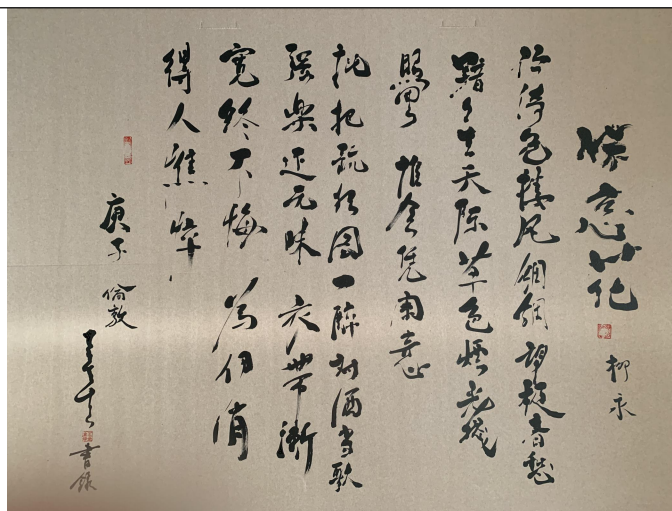 蝶恋花
柳永
伫倚危楼风細細望极春愁
黯々生天际草色烟光残
照里 谁会凭阑意
拟把疏狂图一醉对酒当歌
强樂还无味 衣带漸
寬终不悔 为伊消
得人憔悴
庚子 倫敦
書録